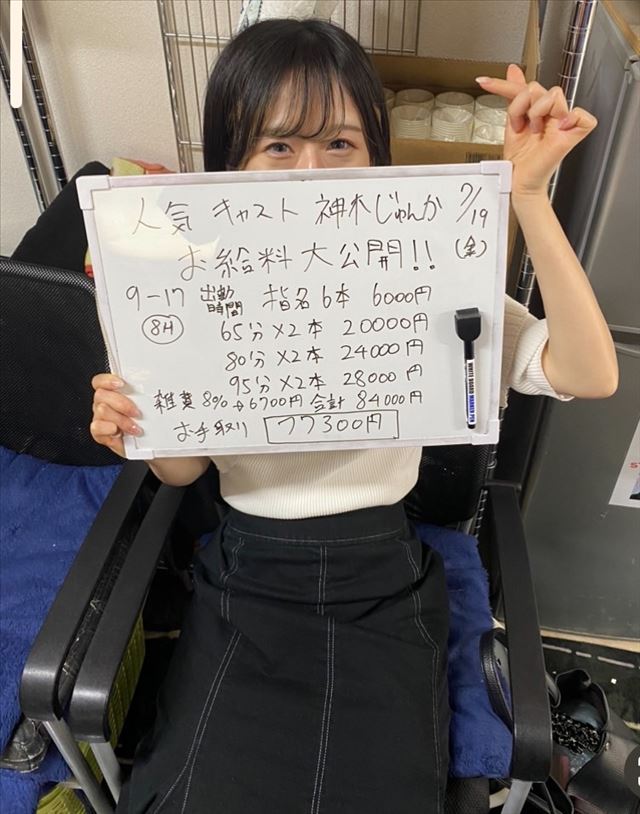 人気 キャスト 神木じゅんか 7/19
お給料大公開!! (金)
9-17 出勤時間 指名6本 6000円
8H 65分×2本 20000円
80分×2本 24000円
95分×2本 28000円
雑費 8%→6700円 合計 84000円
お手取り 77300円
WHITE BOARD MARKER PEN